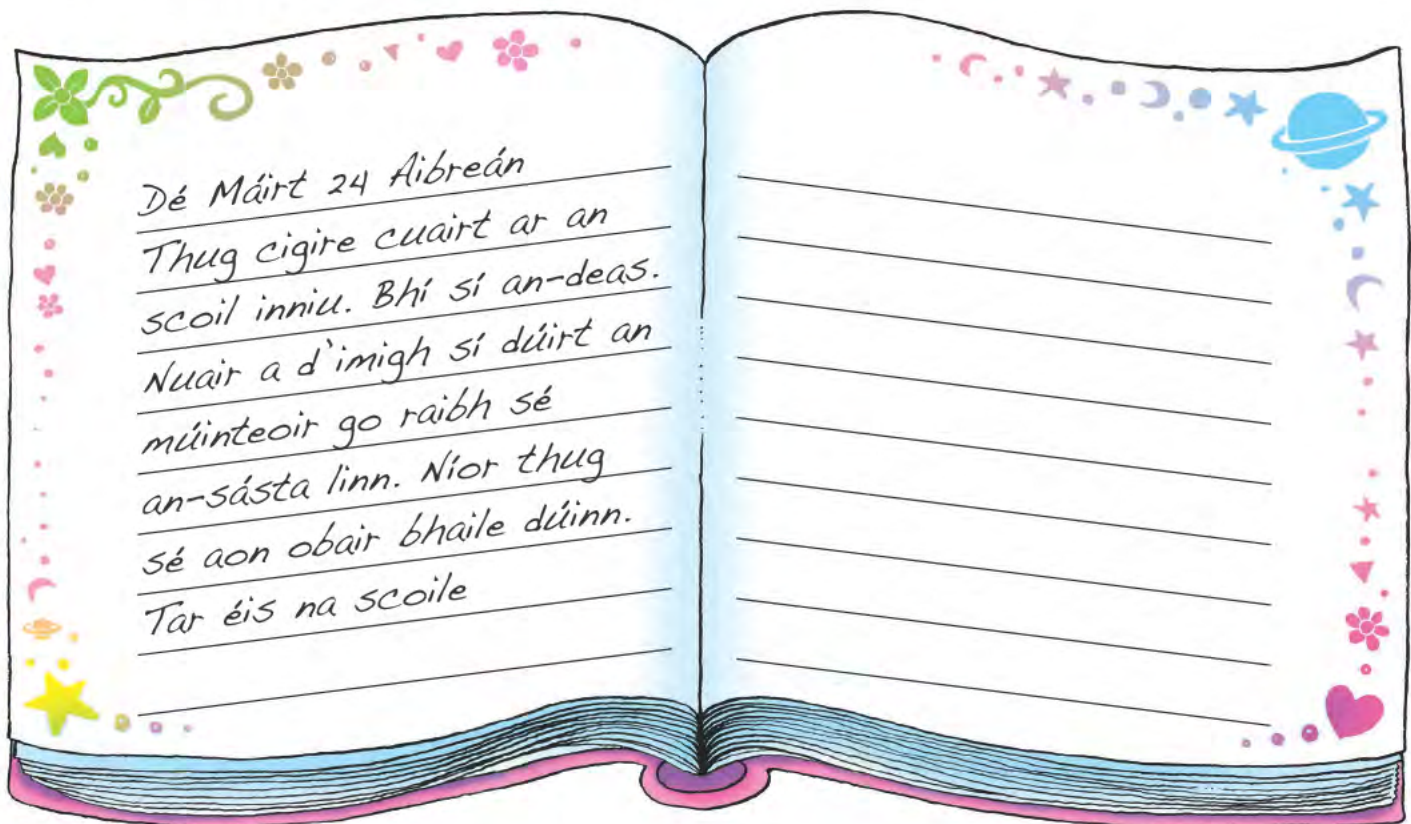 Dé Máirt 24 Aibreán
Thug cigire cuairt ar an
scoil inniu. Bhí sí an-deas.
Nuair a d'imigh sí dúirt an
múinteoir go raibh sé
an-sásta linn. Níor thug
sé aon obair bhaile dúinn.
Tar éis na scoile